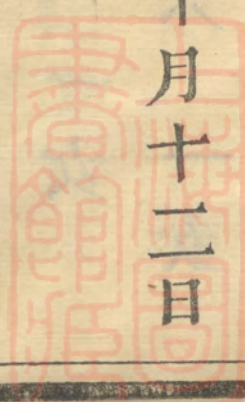 月十二日
上海圖
書館藏